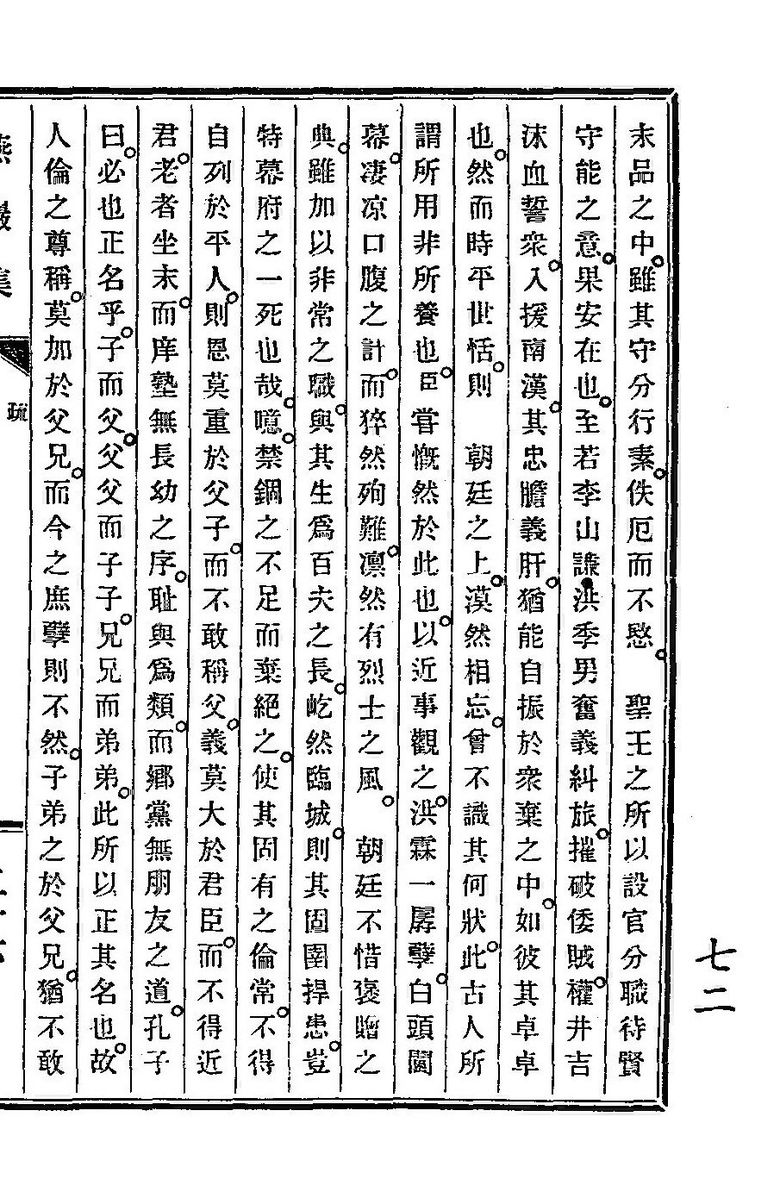 末品之中。雖其守分行素。佚厄而不愍。　聖王之所以設官分職待賢
守能之意。果安在也。至若李山謙洪季男奮義糾旅。摧破倭賊。權井吉
沫血誓衆。入援南漢。其忠膽義肝。猶能自振於衆棄之中。如彼其卓卓
也。然而時平世恬。則　朝廷之上。漠然相忘。曾不識其何狀。此古人所
謂所用非所養也。臣嘗慨然於此也。以近事觀之。洪霖一孱孽。白頭閫
幕。凄凉口腹之計。而猝然殉難。凛然有烈士之風。　朝廷不惜褒贈之
典。雖加以非常之職。與其生爲百夫之長。屹然臨城。則其固圉捍患。豈
特幕府之一死也哉。噫。禁錮之不足而棄絕之。使其固有之倫常。不得
自列於平人。則恩莫重於父子。而不敢稱父。義莫大於君臣。而不得近
君。老者坐末。而庠塾無長幼之序。耻與爲類。而鄕黨無朋友之道。孔子
曰。必也正名乎。子而父。父父而子子。兄兄而弟弟。此所以正其名也。故
人倫之尊稱。莫加於父兄。而今之庶孽則不然。子弟之於父兄。猶不敢
燕巖集
疏
七二